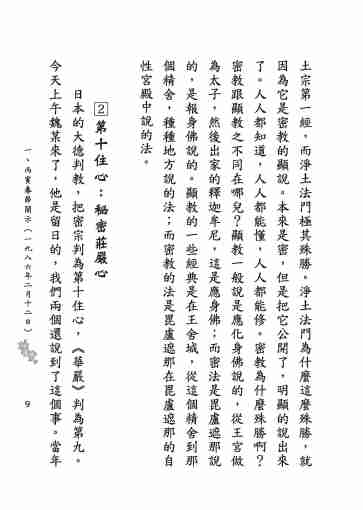 土宗第一經。而淨土法門極其殊勝。淨土法門為什麼這麼殊勝，就
因為它是密教的顯說。本來是密，但是把它公開了，明顯的說出來
了。人人都知道，人人都能懂，人人都能修。密教為什麼殊勝啊？
密教跟顯教之不同在哪兒？顯教一般說是應化身佛說的，從王宮做
為太子，然後出家的釋迦牟尼，這是應身佛；而密法是毘盧遮那說
的，是報身佛說的。顯教的一些經典是在王舍城，從這個精舍到那
個精舍，種種地方說的法；而密教的法是毘盧遮那在毘盧遮那的自
性宮殿中說的法。
2 第十住心：秘密莊嚴心
日本的大德判教，把密宗判為第十住心，《華嚴》判為第九。
今天上午魏某來了，他是留日的，我們兩個還說到了這個事。當年
一、丙寅春節開示（一九八六年二月十二日）
9